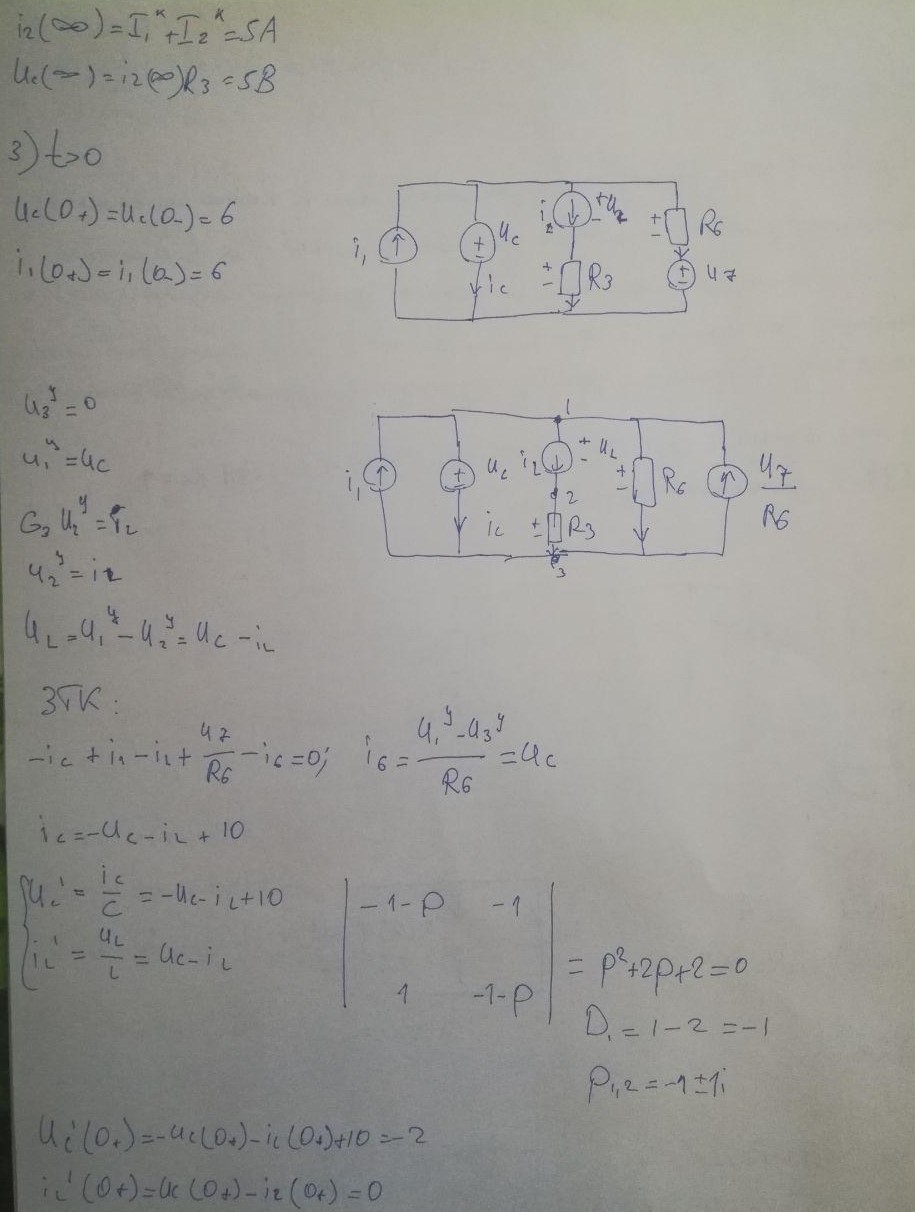 i₂(∞)=I₁ᵏ+I₂ᵏ=5A
Uc(∞)=i₂(∞)R₃=5B
3) t>0
Uc(0+)=Uc(0-)=6
i₁(0+)=i₁(0-)=6
i₁ Uc ic i₂ + - U₂ + - R3 + - R6 U7
U₃ʸ=0
U₁ʸ=Uc
G₃U₂ʸ=i₂
U₂ʸ=i₂
U_L=U₁ʸ-U₂ʸ=Uc-i_L
1
i₁ Uc ic i₂ + - U_L 2 + - R3 3 + - R6 U7/R6
ЗТК:
-ic+i₁-i_L+U7/R6-i6=0; i6=(U₁ʸ-U₃ʸ)/R6=Uc
ic=-Uc-i_L+10
Uc'=ic/C=-Uc-i_L+10
i_L'=U_L/L=Uc-i_L
|-1-p -1|
|1 -1-p| =p²+2p+2=0
D₁=1-2=-1
p₁,₂=-1±1i
Uc'(0+)=-Uc(0+)-i_L(0+)+10=-2
i_L'(0+)=Uc(0+)-i₂(0+)=0